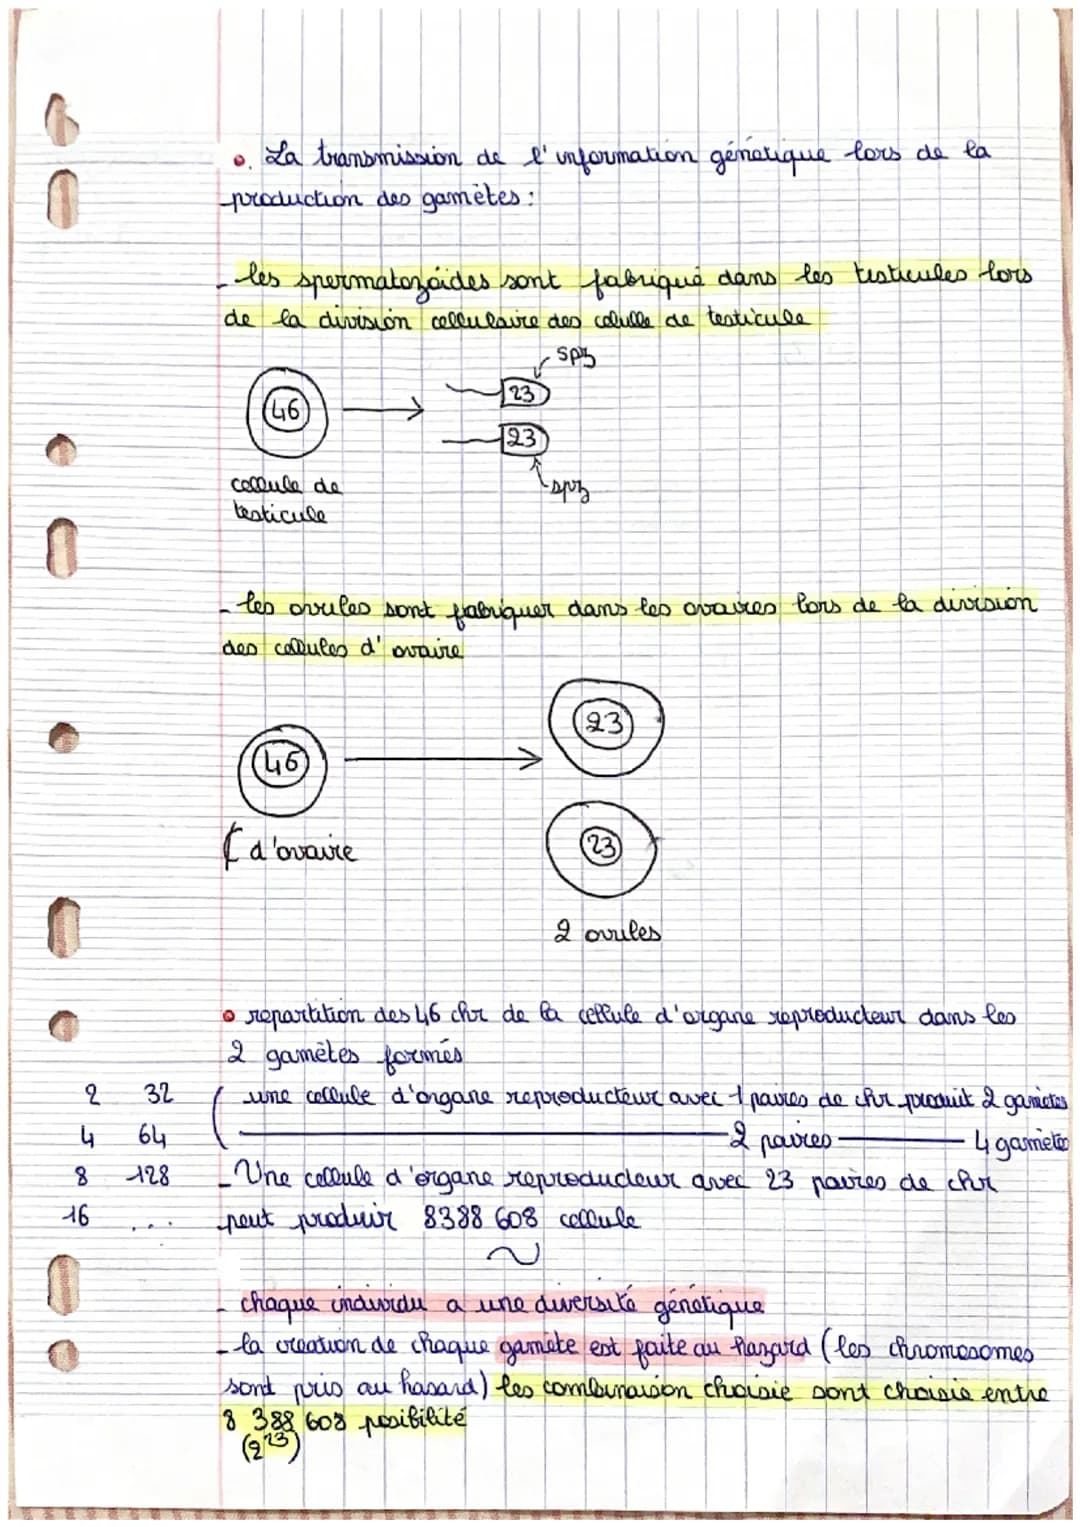 . La transmission de l'information génétique lors de la
production des gamètes :
- les spermatozoïdes sont fabriqué dans les testicules lors
de la division cellulaire des celulle de testicule
46
spz
23
23
spz
cellule de
testicule
- les ovules sont fabriquer dans les ovaires lors de la division
des cellules d'ovaire
46
23
23
d'ovaire
2 ovules
repartition des 46 chr de la cellule d'organe reproducteur dans les
2 gamètes formés
2 32
4 64
8 128
16 ...
( une cellule d'organe reproducteur avec 1 paires de chr produit 2 gamètes
2 paires 4 gamète
- Une cellule d'organe reproducteur avec 23 paires de chr
peut produir 8388 608 cellule
- chaque individu a une diversité génétique
- la creation de chaque gamète est faite au hazard (les chromosomes
sont pris au hasard) les combinaison choisie sont choisie entre
8 388 608 posibilité
(2^23)